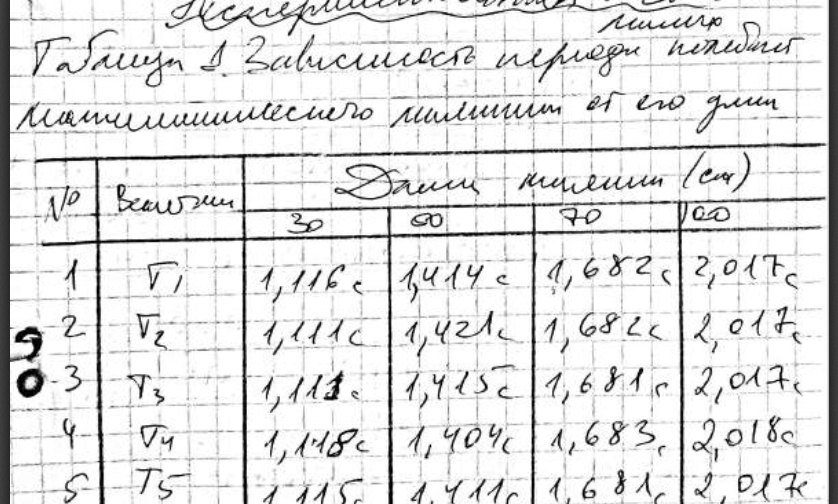 Таблица 1. Зависимость периода колебаний
математического маятника от его длин
№ Величин Длина маятника (см)
30 60 70 100
1 T₁ 1,116с 1,414с 1,682с 2,017с
2 T₂ 1,111с 1,421с 1,682с 2,017с
3 T₃ 1,111с 1,415с 1,681с 2,017с
4 T₄ 1,118с 1,404с 1,683с 2,018с
5 T5 1,115с 1,411с 1,681с 2,017с